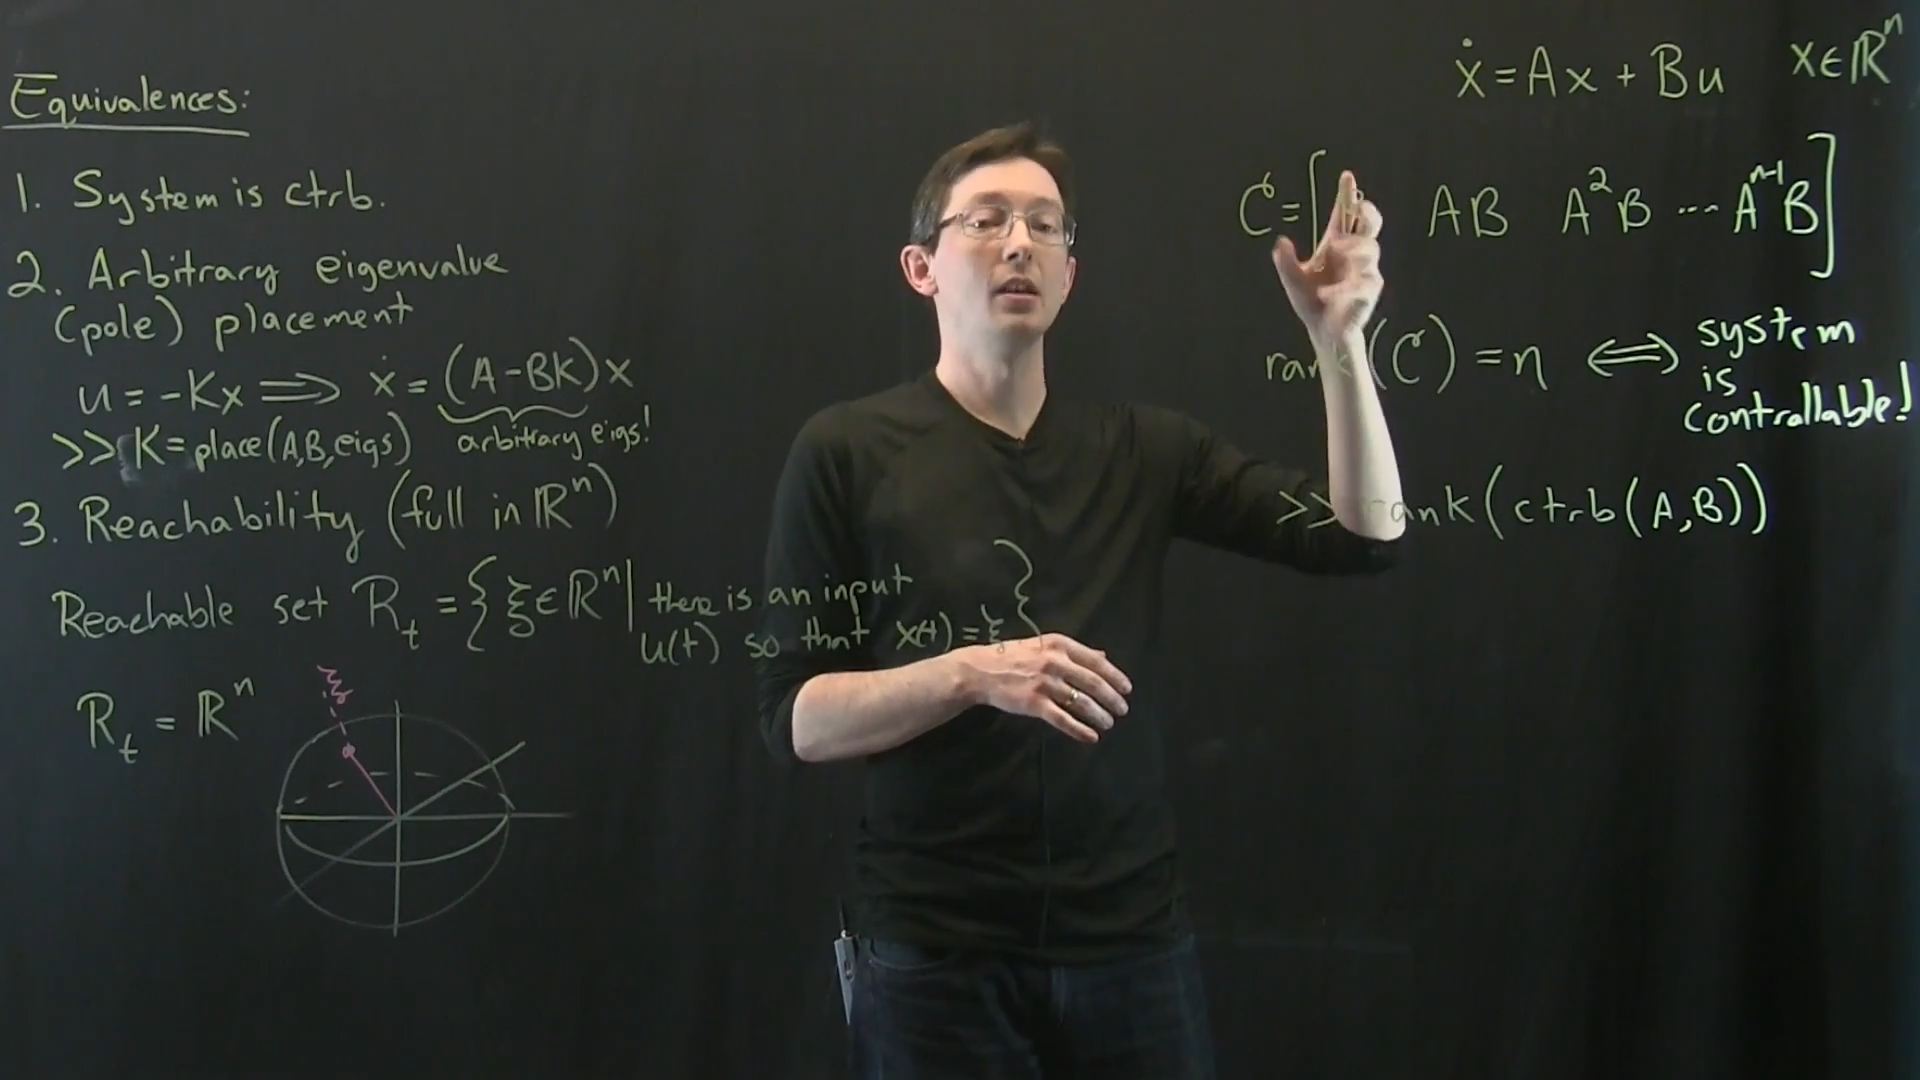 Equivalences:
1. System is ctrb.
2. Arbitrary eigenvalue
(pole) placement
u = -Kx ⟹ ẋ = (A-BK)x
arbitrary eigs!
>> K = place(A,B,eigs)
3. Reachability (full in ℝⁿ)
Reachable set R_t = { ξ ∈ ℝⁿ | there is an input
u(t) so that x(t) = ξ }
R_t = ℝⁿ
ξ
ẋ = Ax + Bu x ∈ ℝⁿ
C = [ B AB A²B ... Aⁿ⁻¹B ]
rank(C) = n ⟺ system
is
controllable!
>> rank(ctrb(A,B))